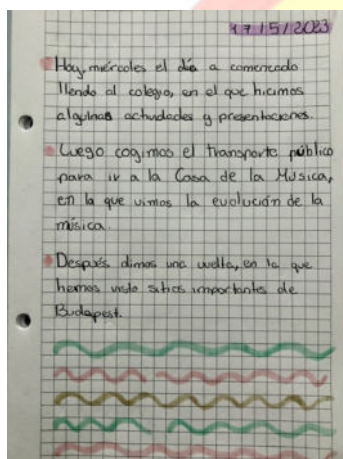 17/5/2023
Hoy, miércoles el día a comenzado
llendo al colegio, en el que hicimos
algunas actividades y presentaciones.
Luego cogimos el transporte público
para ir a la Casa de la Música,
en la que vimos la evolución de la
música.
Después dimos una vuelta, en la que
hemos visto sitios importantes de
Budapest.